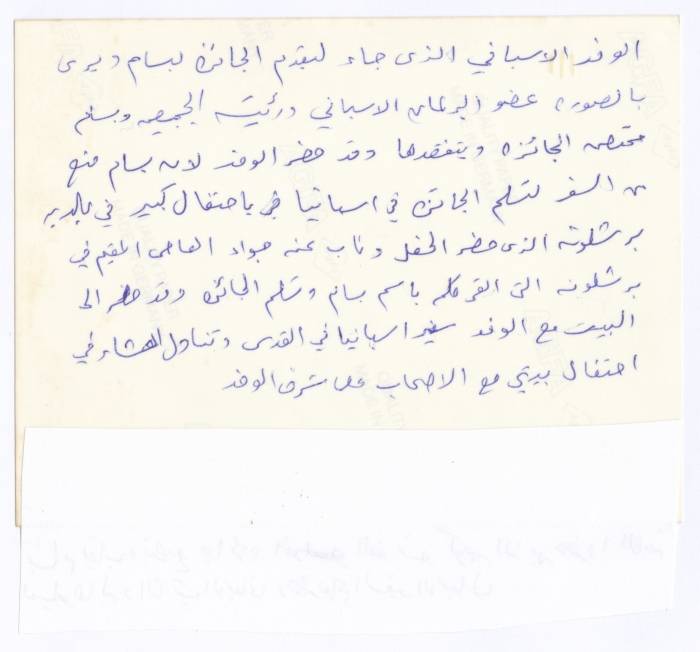 الوفد الاسباني الذى جاء ليقدم الجائزة لبسام ويرى
بالصورة عضو البرلمان الاسباني ورئيسة الجمعية وبسام
الجائزه ويتفقدها وقد حضر الوفد لان بسام منع
من السفر لتسلم الجائزة في اسبانيا في باحتفال كبير في
برشلونه الذى حضر الحفل وناب عنه جواد المقيم في
برشلونه التى القى كلمه باسم بسام وتسلم الجائزه وقد حضر الى
البيت مع الوفد سفير اسبانيا في القدس وتناول العشاء في
احتفال بيتي مع الاصحاب على شرف الوفد